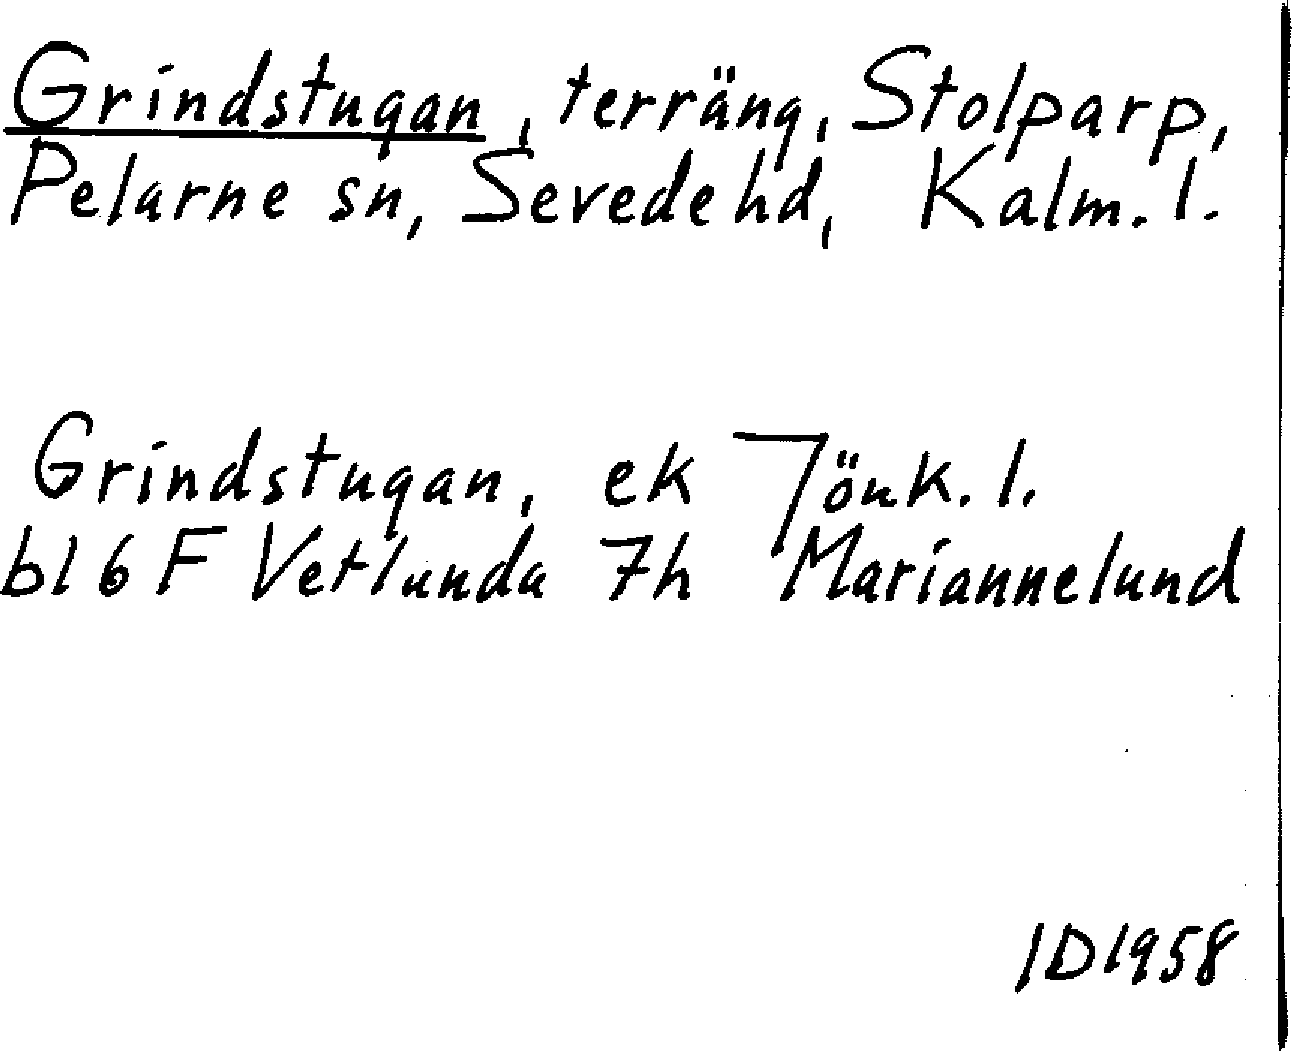 Grindstugan, terräng, Stolparp,
Pelarne sn, Sevede hd, Kalm. l.
Grindstugan, ek Jönk. l.
bl 6 F Vetlanda 7h Mariannelund
ID 1958